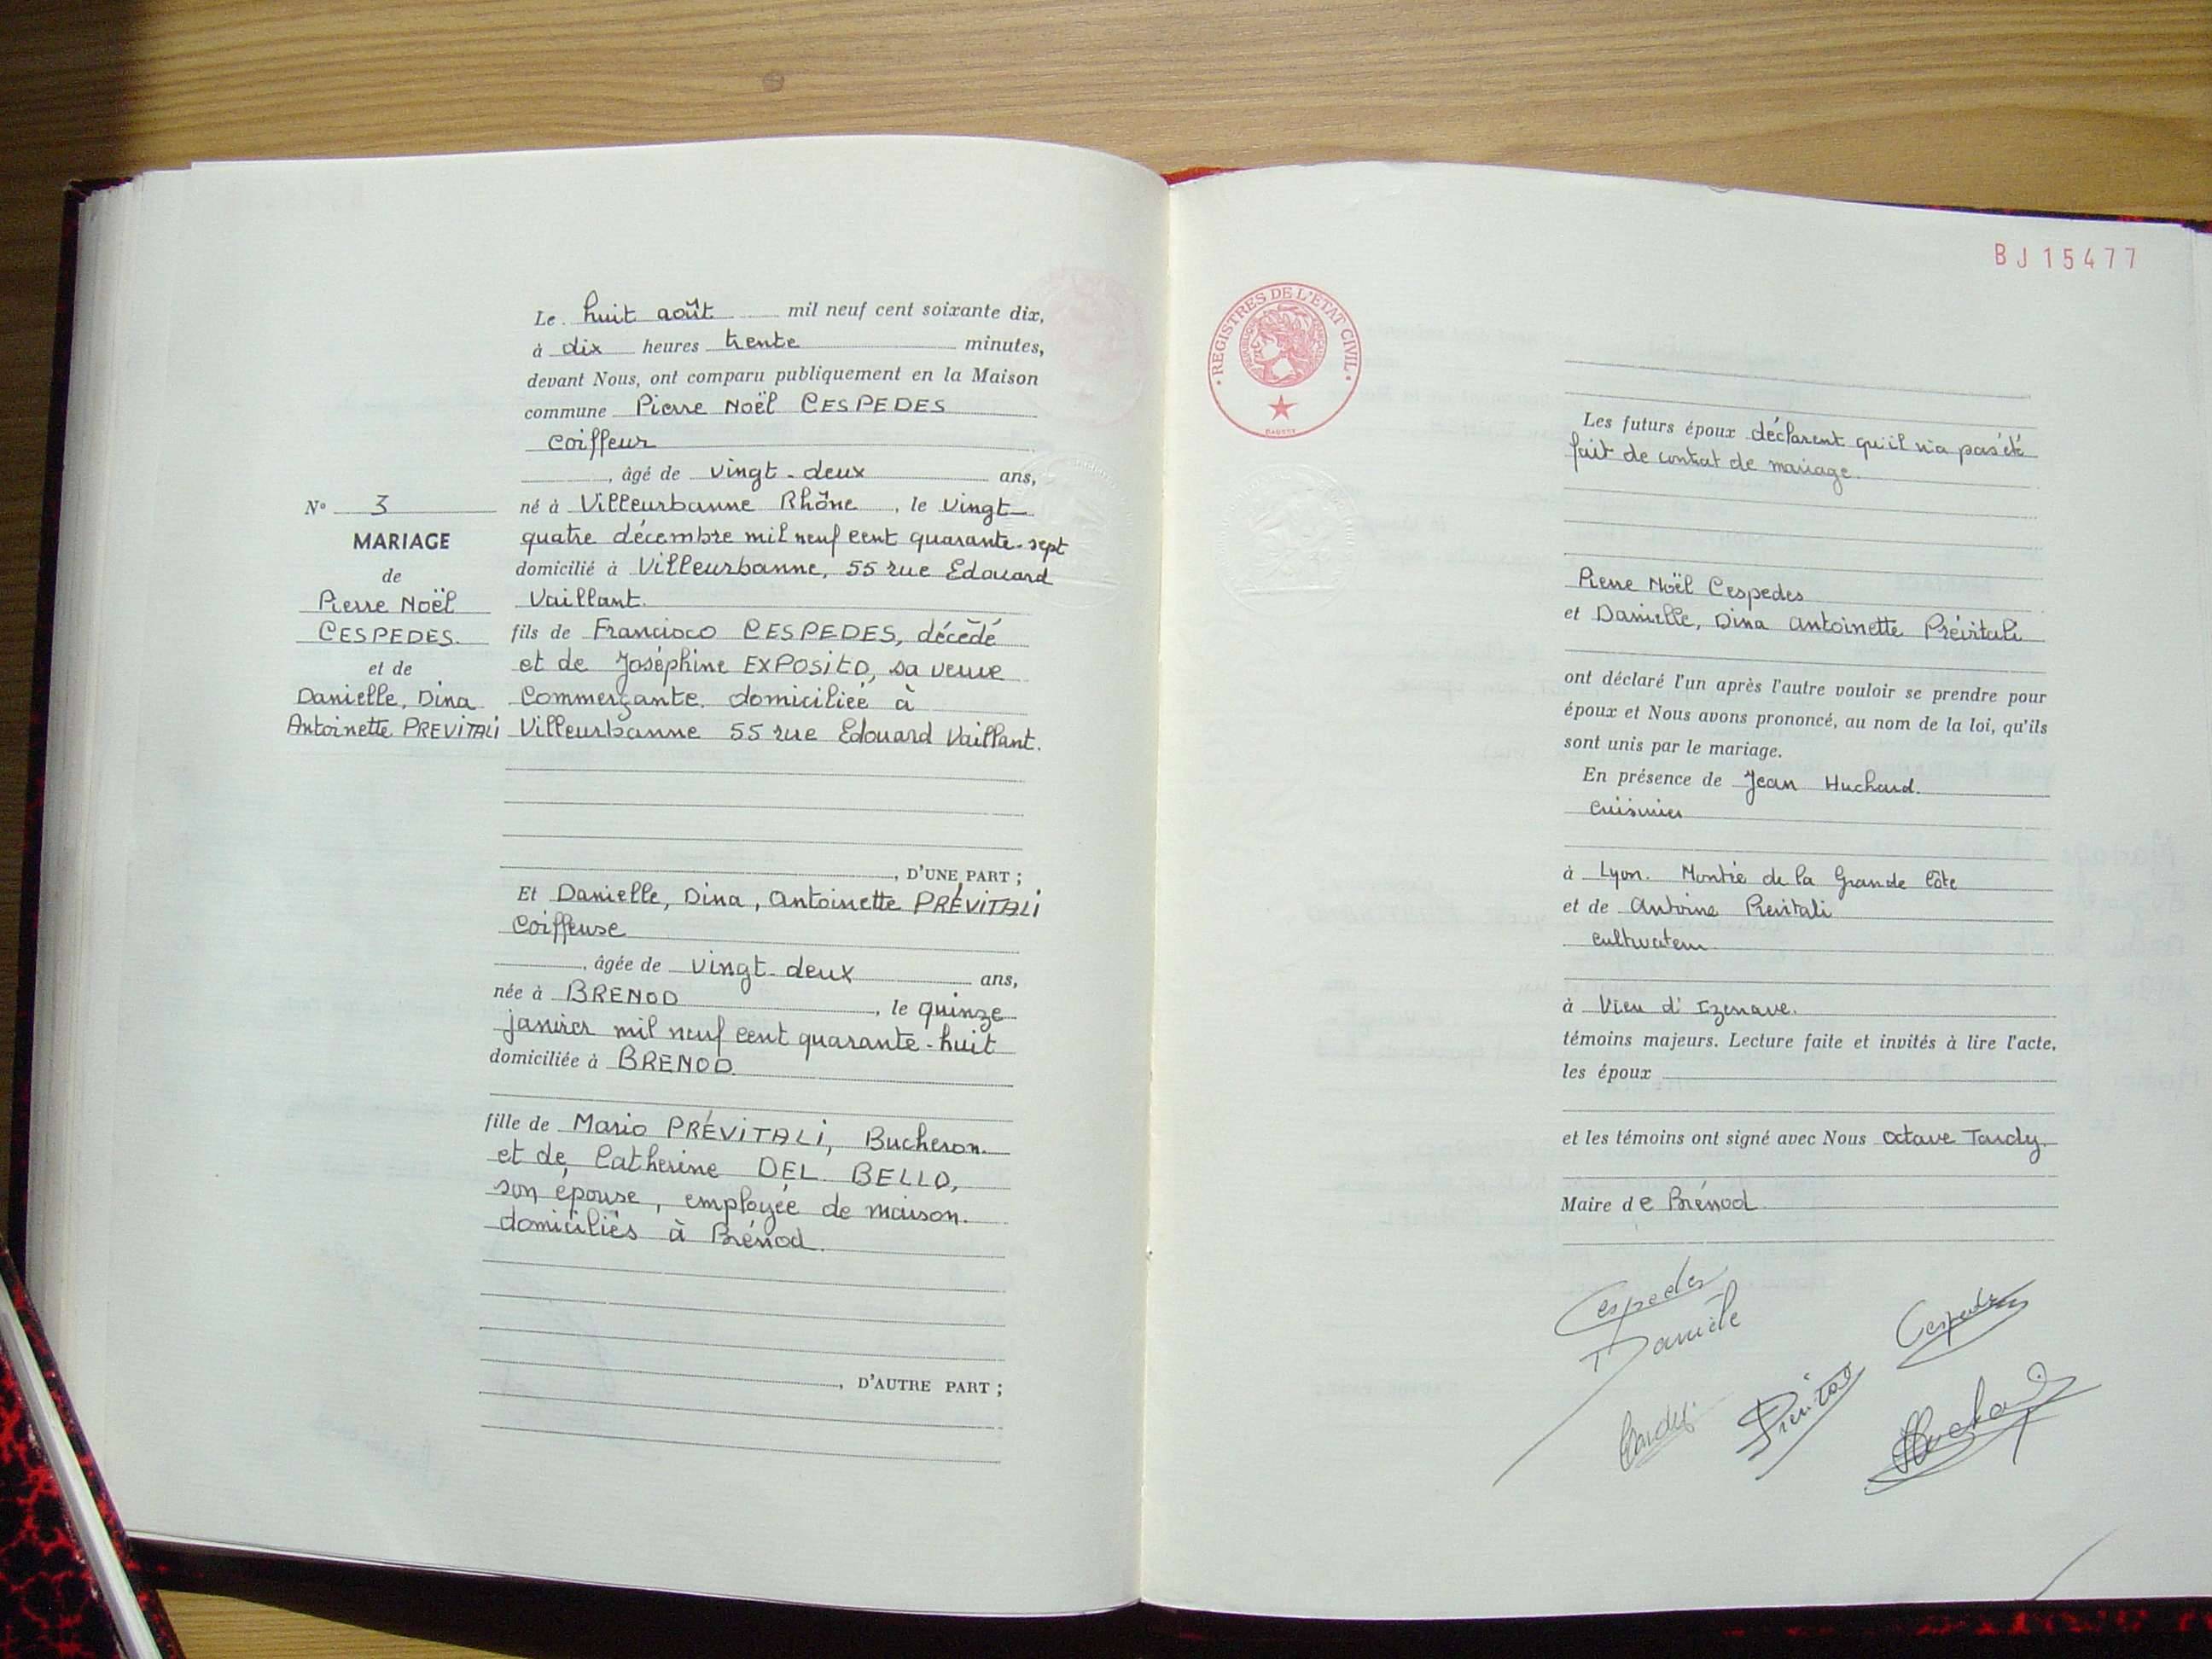 Le huit août mil neuf cent soixante dix,
à dix heures trente minutes,
devant Nous, ont comparu publiquement en la Maison
commune Pierre Noël CESPEDES
coiffeur
, âgé de vingt-deux ans,
né à Villeurbanne Rhône, le vingt
quatre décembre mil neuf cent quarante-sept
domicilié à Villeurbanne, 55 rue Edouard
Vaillant.
fils de Francisco CESPEDES, décédé
et de Joséphine EXPOSITO, sa veuve
Commerçante. domiciliée à
Villeurbanne 55 rue Edouard Vaillant.
, D'UNE PART ;
Et Danielle, Dina, Antoinette PRÉVITALI
Coiffeuse
, âgée de vingt-deux ans,
née à BRENOD, le quinze
janvier mil neuf cent quarante-huit
domiciliée à BRENOD.
fille de Mario PRÉVITALI, Bucheron.
et de Catherine DEL BELLO,
son épouse, employée de maison.
domiciliés à Brénod.
, D'AUTRE PART ;
N° 3
MARIAGE
de
Pierre Noël
CESPEDES.
et de
Danielle, Dina
Antoinette PREVITALI
BJ 15477
• REGISTRES DE L'ETAT CIVIL •
Les futurs époux déclarent qu'il n'a pas été
fait de contrat de mariage.
Pierre Noël Cespedes
et Danielle, Dina Antoinette Prévitali
ont déclaré l'un après l'autre vouloir se prendre pour
époux et Nous avons prononcé, au nom de la loi, qu'ils
sont unis par le mariage.
En présence de Jean Huchard.
cuisinier
à Lyon. Montée de la Grande Côte
et de Antoine Prévitali
cultivateur
à Vieu d'Izenave.
témoins majeurs. Lecture faite et invités à lire l'acte,
les époux
et les témoins ont signé avec Nous Octave Tardy.
Maire de Brénod
Cespedes
Danièle
Cespedes
Tardy